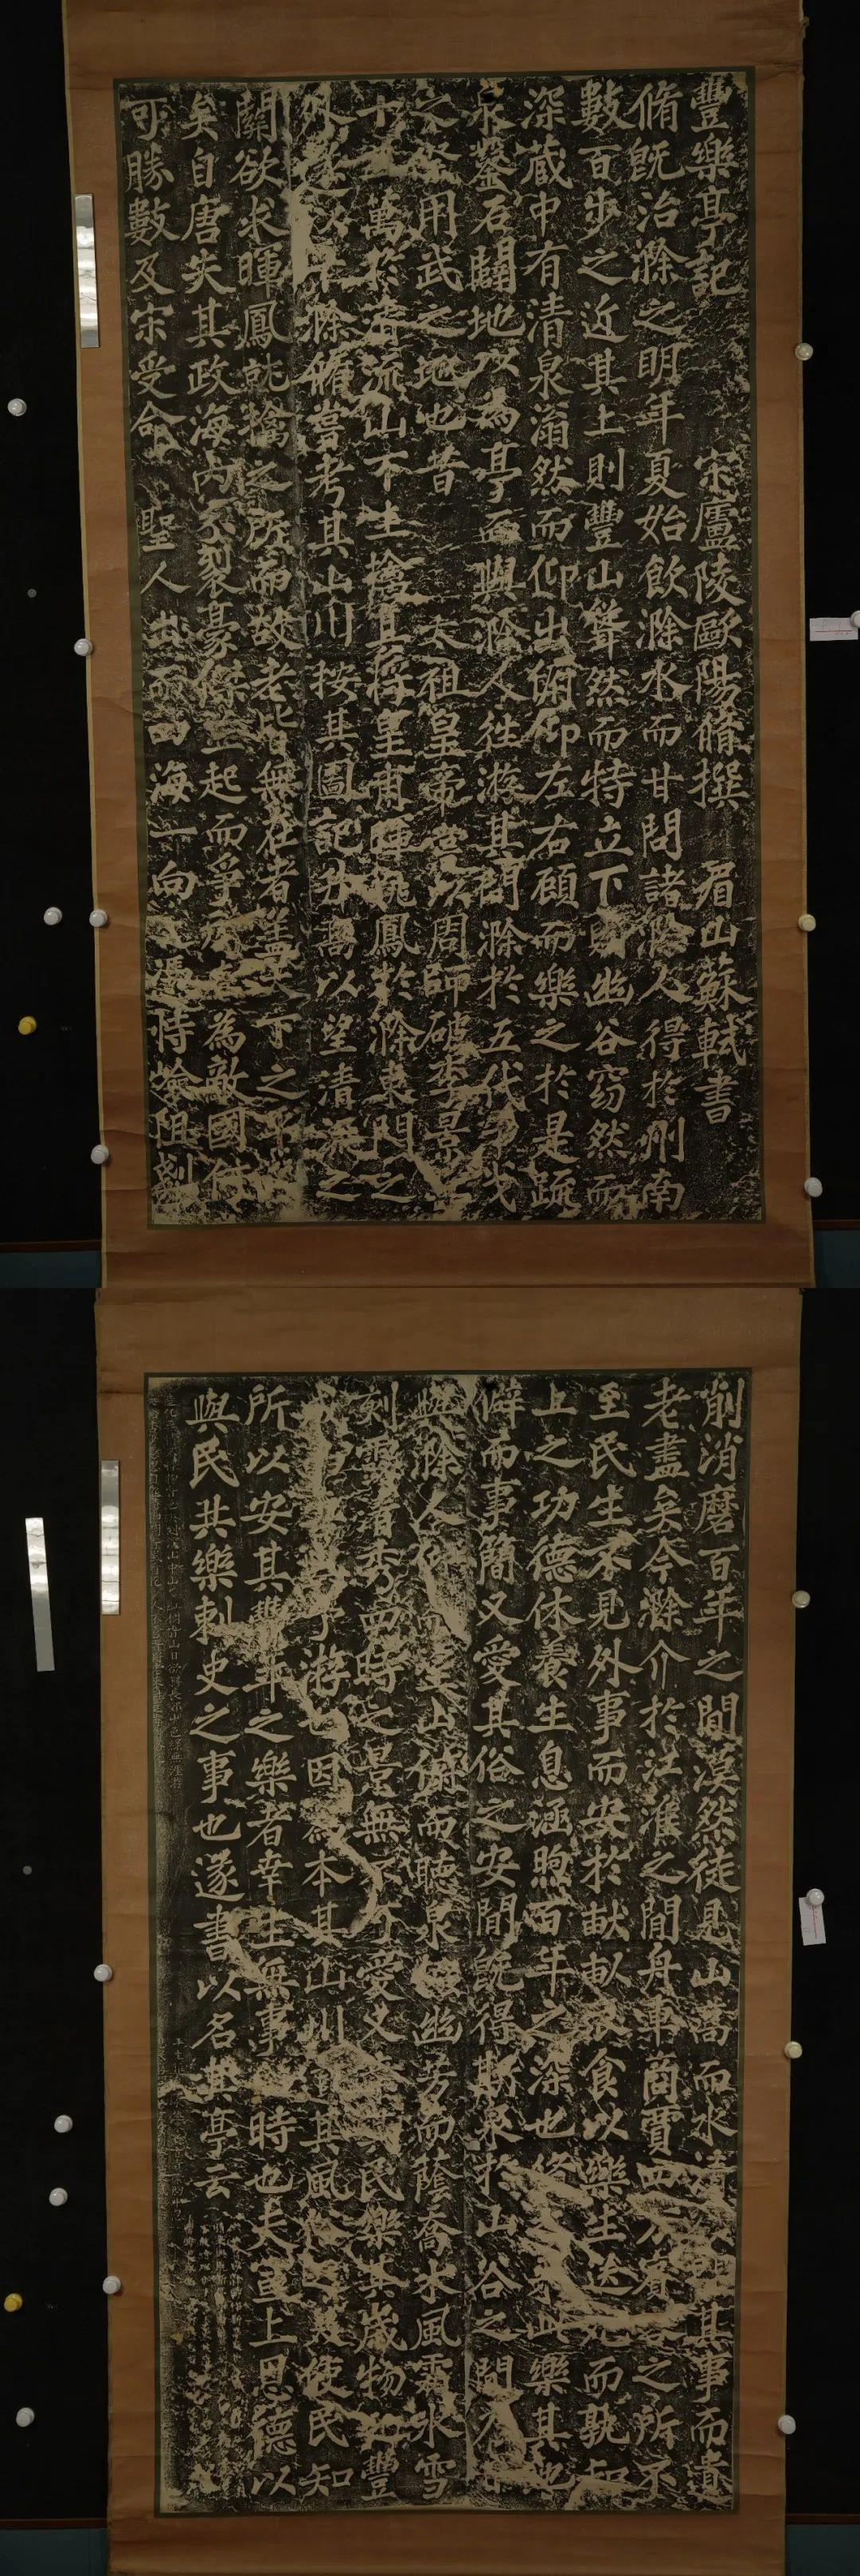 豐樂亭記 宋廬陵歐陽脩撰 眉山蘇軾書
脩既治滁之明年夏始飲滁水而甘問諸滁人得於州南
數百步之近其上則豐山聳然而特立下則幽谷窈然而
深藏中有清泉滃然而仰出俯仰左右顧而樂之於是疏
泉鑿石闢地以為亭而與滁人往游其間滁於五代干戈
之際用武之地也昔 太祖皇帝嘗以周師破李景
十萬於清流山下生擒其將皇甫暉姚鳳於滁東門之
外遂以平滁脩嘗考其山川按其圖記升高以望清流之
關欲求暉鳳就擒之所而故老皆無在者蓋天下之平久
矣自唐失其政海內分裂豪傑並起而爭所在為敵國何
可勝數及宋受命 聖人出而四海一向之憑恃險阻剗
削消磨百年之間漠然徒見山高而水清欲問其事而遺
老盡矣今滁介於江淮之間舟車商賈四方賓客之所不
至民生不見外事而安於畎畝衣食以樂生送死而孰知
上之功德休養生息涵煦百年之深也脩之來此樂其地
僻而事簡又愛其俗之安閒既得斯泉於山谷之間乃日
與滁人仰而望山俯而聽泉掇幽芳而蔭喬木風霜冰雪
刻露清秀四時之景無不可愛又幸其民樂其歲物之豐
成而喜與予游也因為本其山川道其風俗之美使民知
所以安其豐年之樂者幸生無事之時也夫宣上恩德以
與民共樂刺史之事也遂書以名其亭云